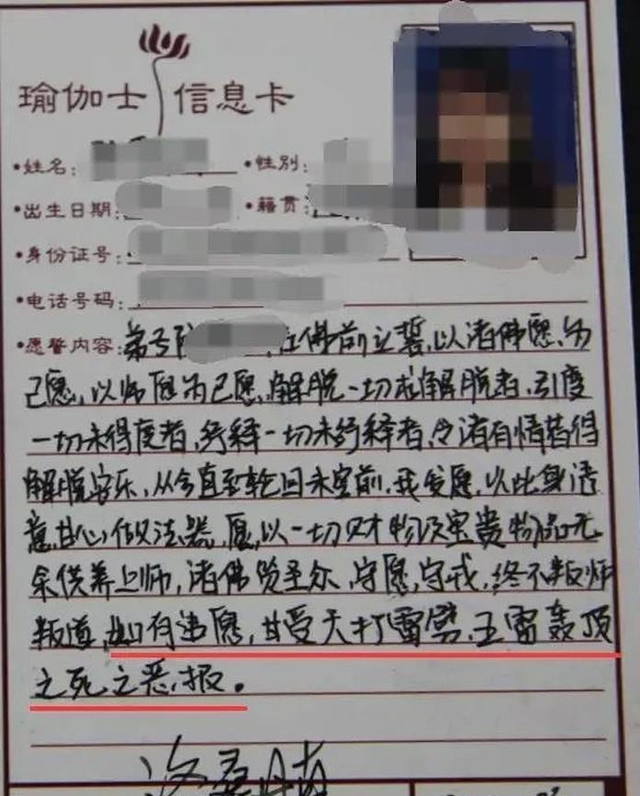 瑜伽士 信息卡
•姓名： •性别：
•出生日期： •籍贯：
•身份证号：
•电话号码：
•愿誓内容：弟子 在佛前立誓，以诸佛愿为
己愿，以师愿为己愿，解脱一切未解脱者，引度
一切未得度者，纾释一切未纾释者，令诸有情皆得
解脱安乐，从今直至轮回未空前，我发愿，以此身语
意甘心做法器，愿以一切财物及宝贵物品无
余供养上师，诸佛贤圣尔，守愿，守戒，终不叛师
叛道，如有违愿，甘受天打雷劈，五雷轰顶
之死之恶报。